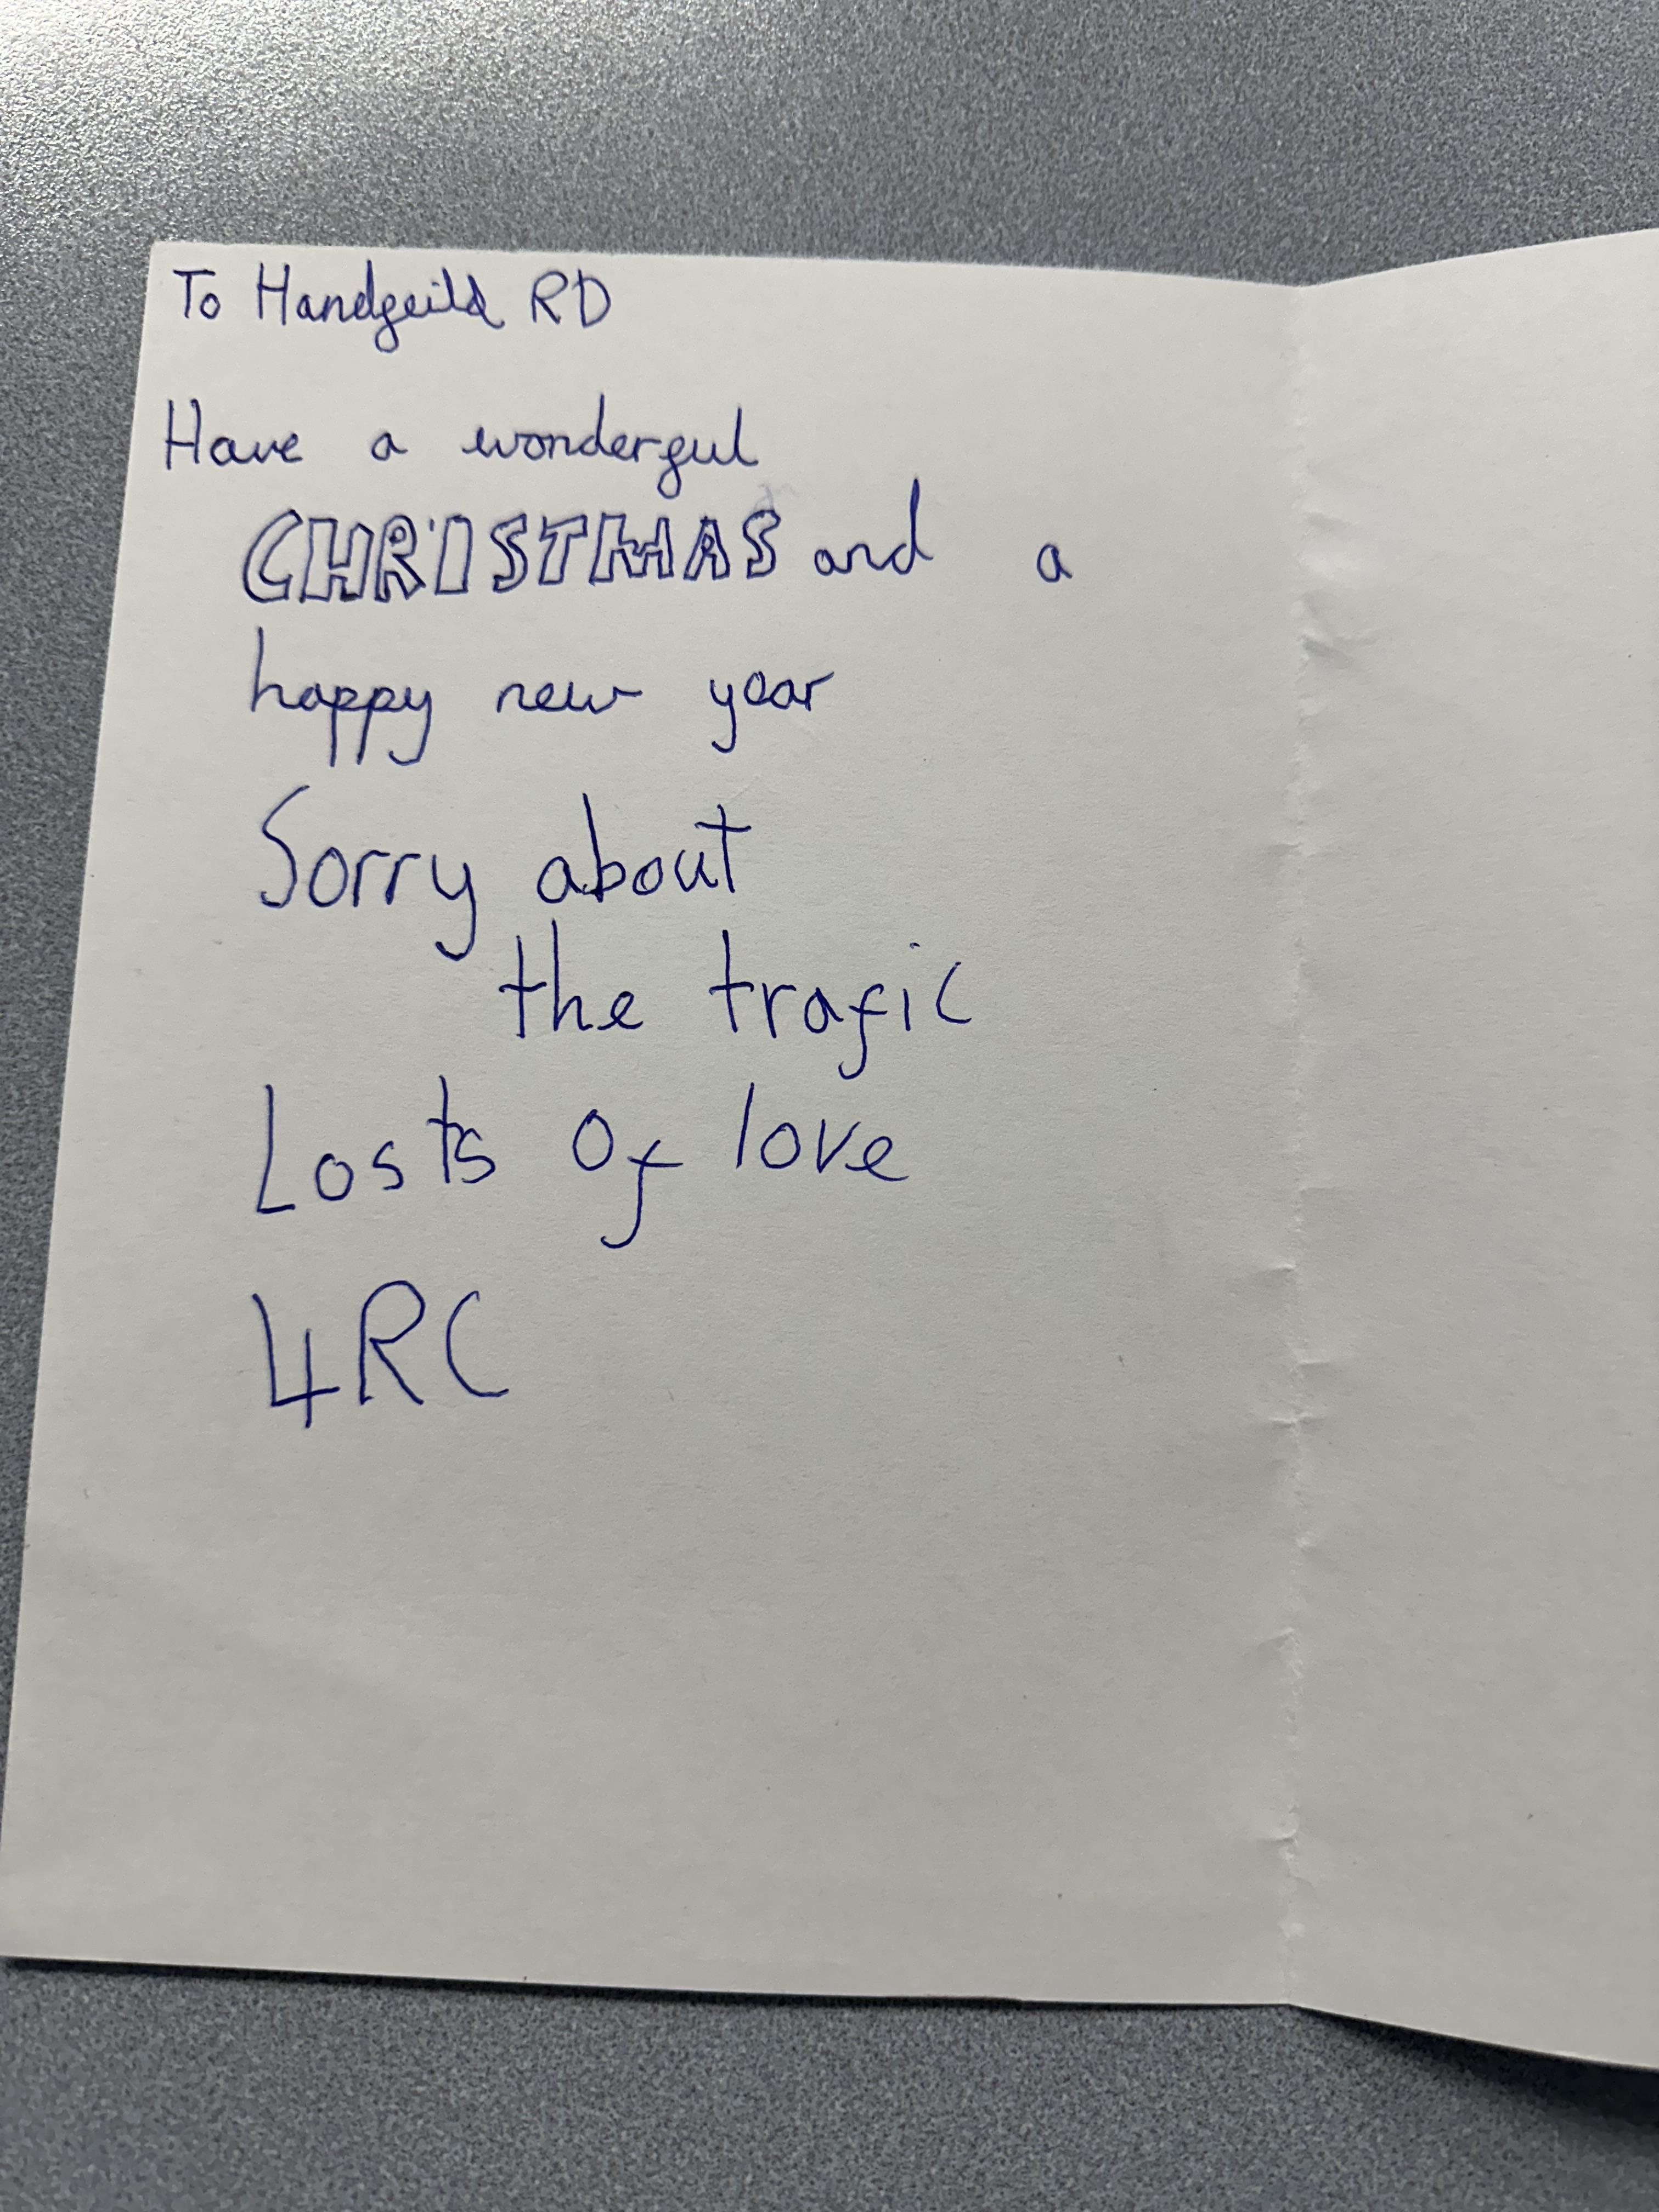 To Handgeild RD
Have a wonderful
CHRISTMAS and a
happy new year
Sorry about
the trafic
Losts of love
4RC